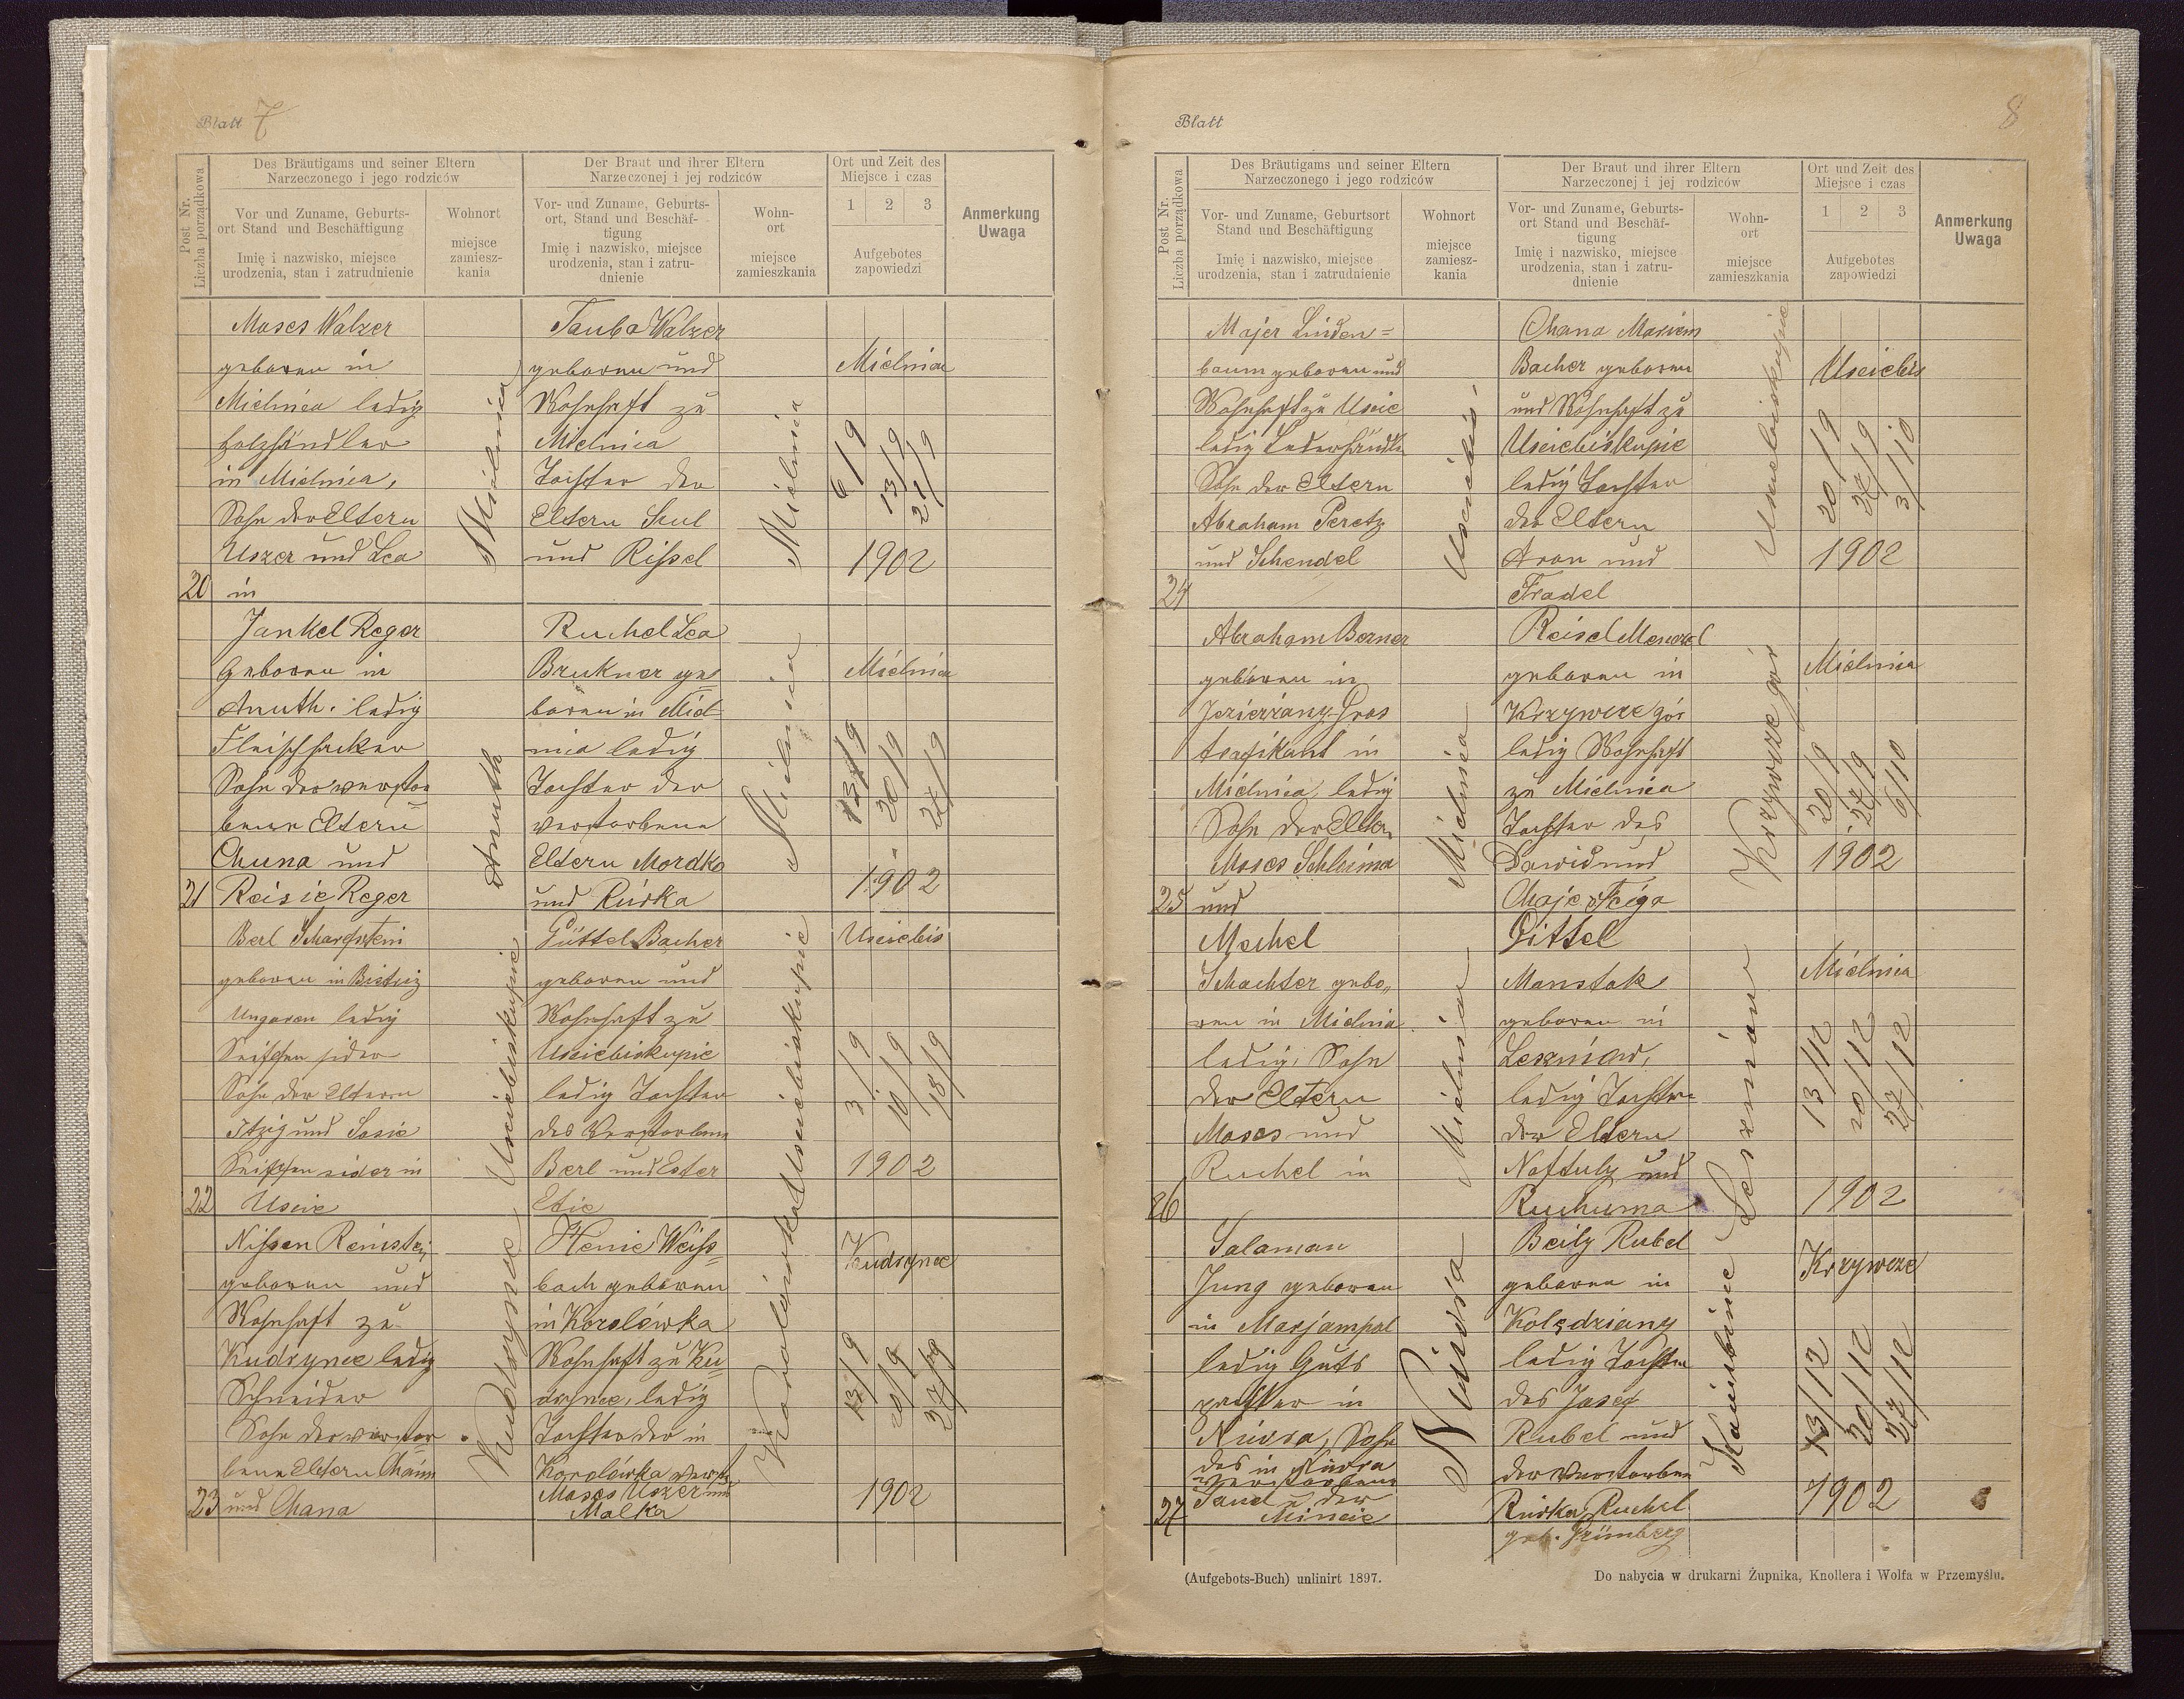 Blatt 7
Post Nr.
Liczba porządkowa
Des Bräutigams und seiner Eltern
Narzeczonego i jego rodziców
Der Braut und ihrer Eltern
Narzeczonej i jej rodziców
Ort und Zeit des
Miejsce i czas
Vor und Zuname, Geburts-
ort Stand und Beschäftigung
Imię i nazwisko, miejsce
urodzenia, stan i zatrudnienie
Wohnort
miejsce
zamiesz-
kania
Vor- und Zuname, Geburts-
ort, Stand und Beschäf-
tigung
Imię i nazwisko, miejsce
urodzenia, stan i zatru-
dnienie
Wohn-
ort
miejsce
zamieszkania
1 2 3
Aufgebotes
zapowiedzi
Anmerkung
Uwaga
20
Moses Walzer
geboren in
Mielnica ledig
Holzhändler
in Mielnica,
Sohn der Eltern
Uszer und Lea
in
Mielnica
Tauba Walzer
geboren und
Wohnhaft zu
Mielnica
Tochter der
Eltern Srul
und Rissel
Mielnica
Mielnica
6/9
13/9
21/9
1902
21
Jankel Reger
Geboren in
Anuth. ledig
Fleischhaker
Sohn der verstor
benen Eltern
Chuna und
Reisie Reger
Anuth
Ruchel Lea
Brukner ge
boren in Miel
nica ledig
Tochter der
verstorbene
Eltern Mordko
und Riwka
Mielnica
Mielnica
13/9
20/9
27/9
1902
22
Berl Scharfstein
geboren in
Ungarn ledig
Sohn der Eltern
Itzig und Sosie
in
Uscie
Usciebiskupie
Güttel Bacher
geboren und
Wohnhaft zu
Usciebiskupie
ledig Tochter
des Verstorbenen
Berl und Ester
Etie
Usciebiskupie
Usciebis
3/9
10/9
18/9
1902
23
Nissen Reinstein
geboren und
Wohnhaft zu
Kudrynce ledig
Schneider
Sohn der verstor
benen Eltern Chaim
und Chana
Kudrynce
Henie Weiss=
bach geboren
in Korolówka
Wohnhaft zu Ku=
drynce, ledig
Tochter der in
Korolówka verst
Moses Uszer und
Malka
Korolówka
Kudrynce
13/9
20/9
27/9
1902
Blatt
8
Post Nr.
Liczba porządkowa
Des Bräutigams und seiner Eltern
Narzeczonego i jego rodziców
Der Braut und ihrer Eltern
Narzeczonej i jej rodziców
Ort und Zeit des
Miejsce i czas
Vor- und Zuname, Geburtsort
Stand und Beschäftigung
Imię i nazwisko, miejsce
urodzenia, stan i zatrudnienie
Wohnort
miejsce
zamiesz-
kania
Vor- und Zuname, Geburts-
ort Stand und Beschäf-
tigung
Imię i nazwisko, miejsce
urodzenia, stan i zatru-
dnienie
Wohn-
ort
miejsce
zamieszkania
1 2 3
Aufgebotes
zapowiedzi
Anmerkung
Uwaga
24
Majer Linden=
baum geboren und
Wohnhaft zu Uscie
ledig Lederhändler
Sohn der Eltern
Abraham Peretz
und Schendel
Usciebis
Chana Mariem
Bacher geboren
und Wohnhaft zu
Usciebiskupie
ledig Tochter
der Eltern
Aron und
Fradel
Usciebiskupie
Usciebis
20/9
27/9
3/10
1902
25
Abraham Berner
geboren in
Jezierzany Gros
trafikant in
Mielnica, ledig
Sohn der Eltern
Moses Schleima
und
Mielnica
Reisel Menczel
geboren in
Krzywcze gór
ledig Wohnhaft
zu Mielnica
Tochter des
Dawid und
Chaje Feiga
Krzywcze gór
Mielnica
20/9
27/9
6/10
1902
26
Mechel
Schachter gebo„
ren in Mielnica
ledig, Sohn
der Eltern
Moses und
Ruchel in
Mielnica
Gittel
Manstok
geboren in
Leszniow,
ledig Tochter
der Eltern
Naftuly und
Ruchuma
Leszniow
Mielnica
13/12
20/12
27/12
1902
27
Salaman
Jung geboren
in Marjampol
ledig Guts
pächter in
Niwra, Sohn
des in Niwra
verstorbenen
u. der
Mincie
Niwra
Beily Rubel
geboren in
Kolędziany
ledig Tochter
des Josef
Rubel und
der Verstorben
Riwka Ruchel
geb. Grünberg
Krzywcze
13/12
20/12
27/12
1902
(Aufgebots-Buch) unlinirt 1897.
Do nabycia w drukarni Żupnika, Knollera i Wolfa w Przemyślu.